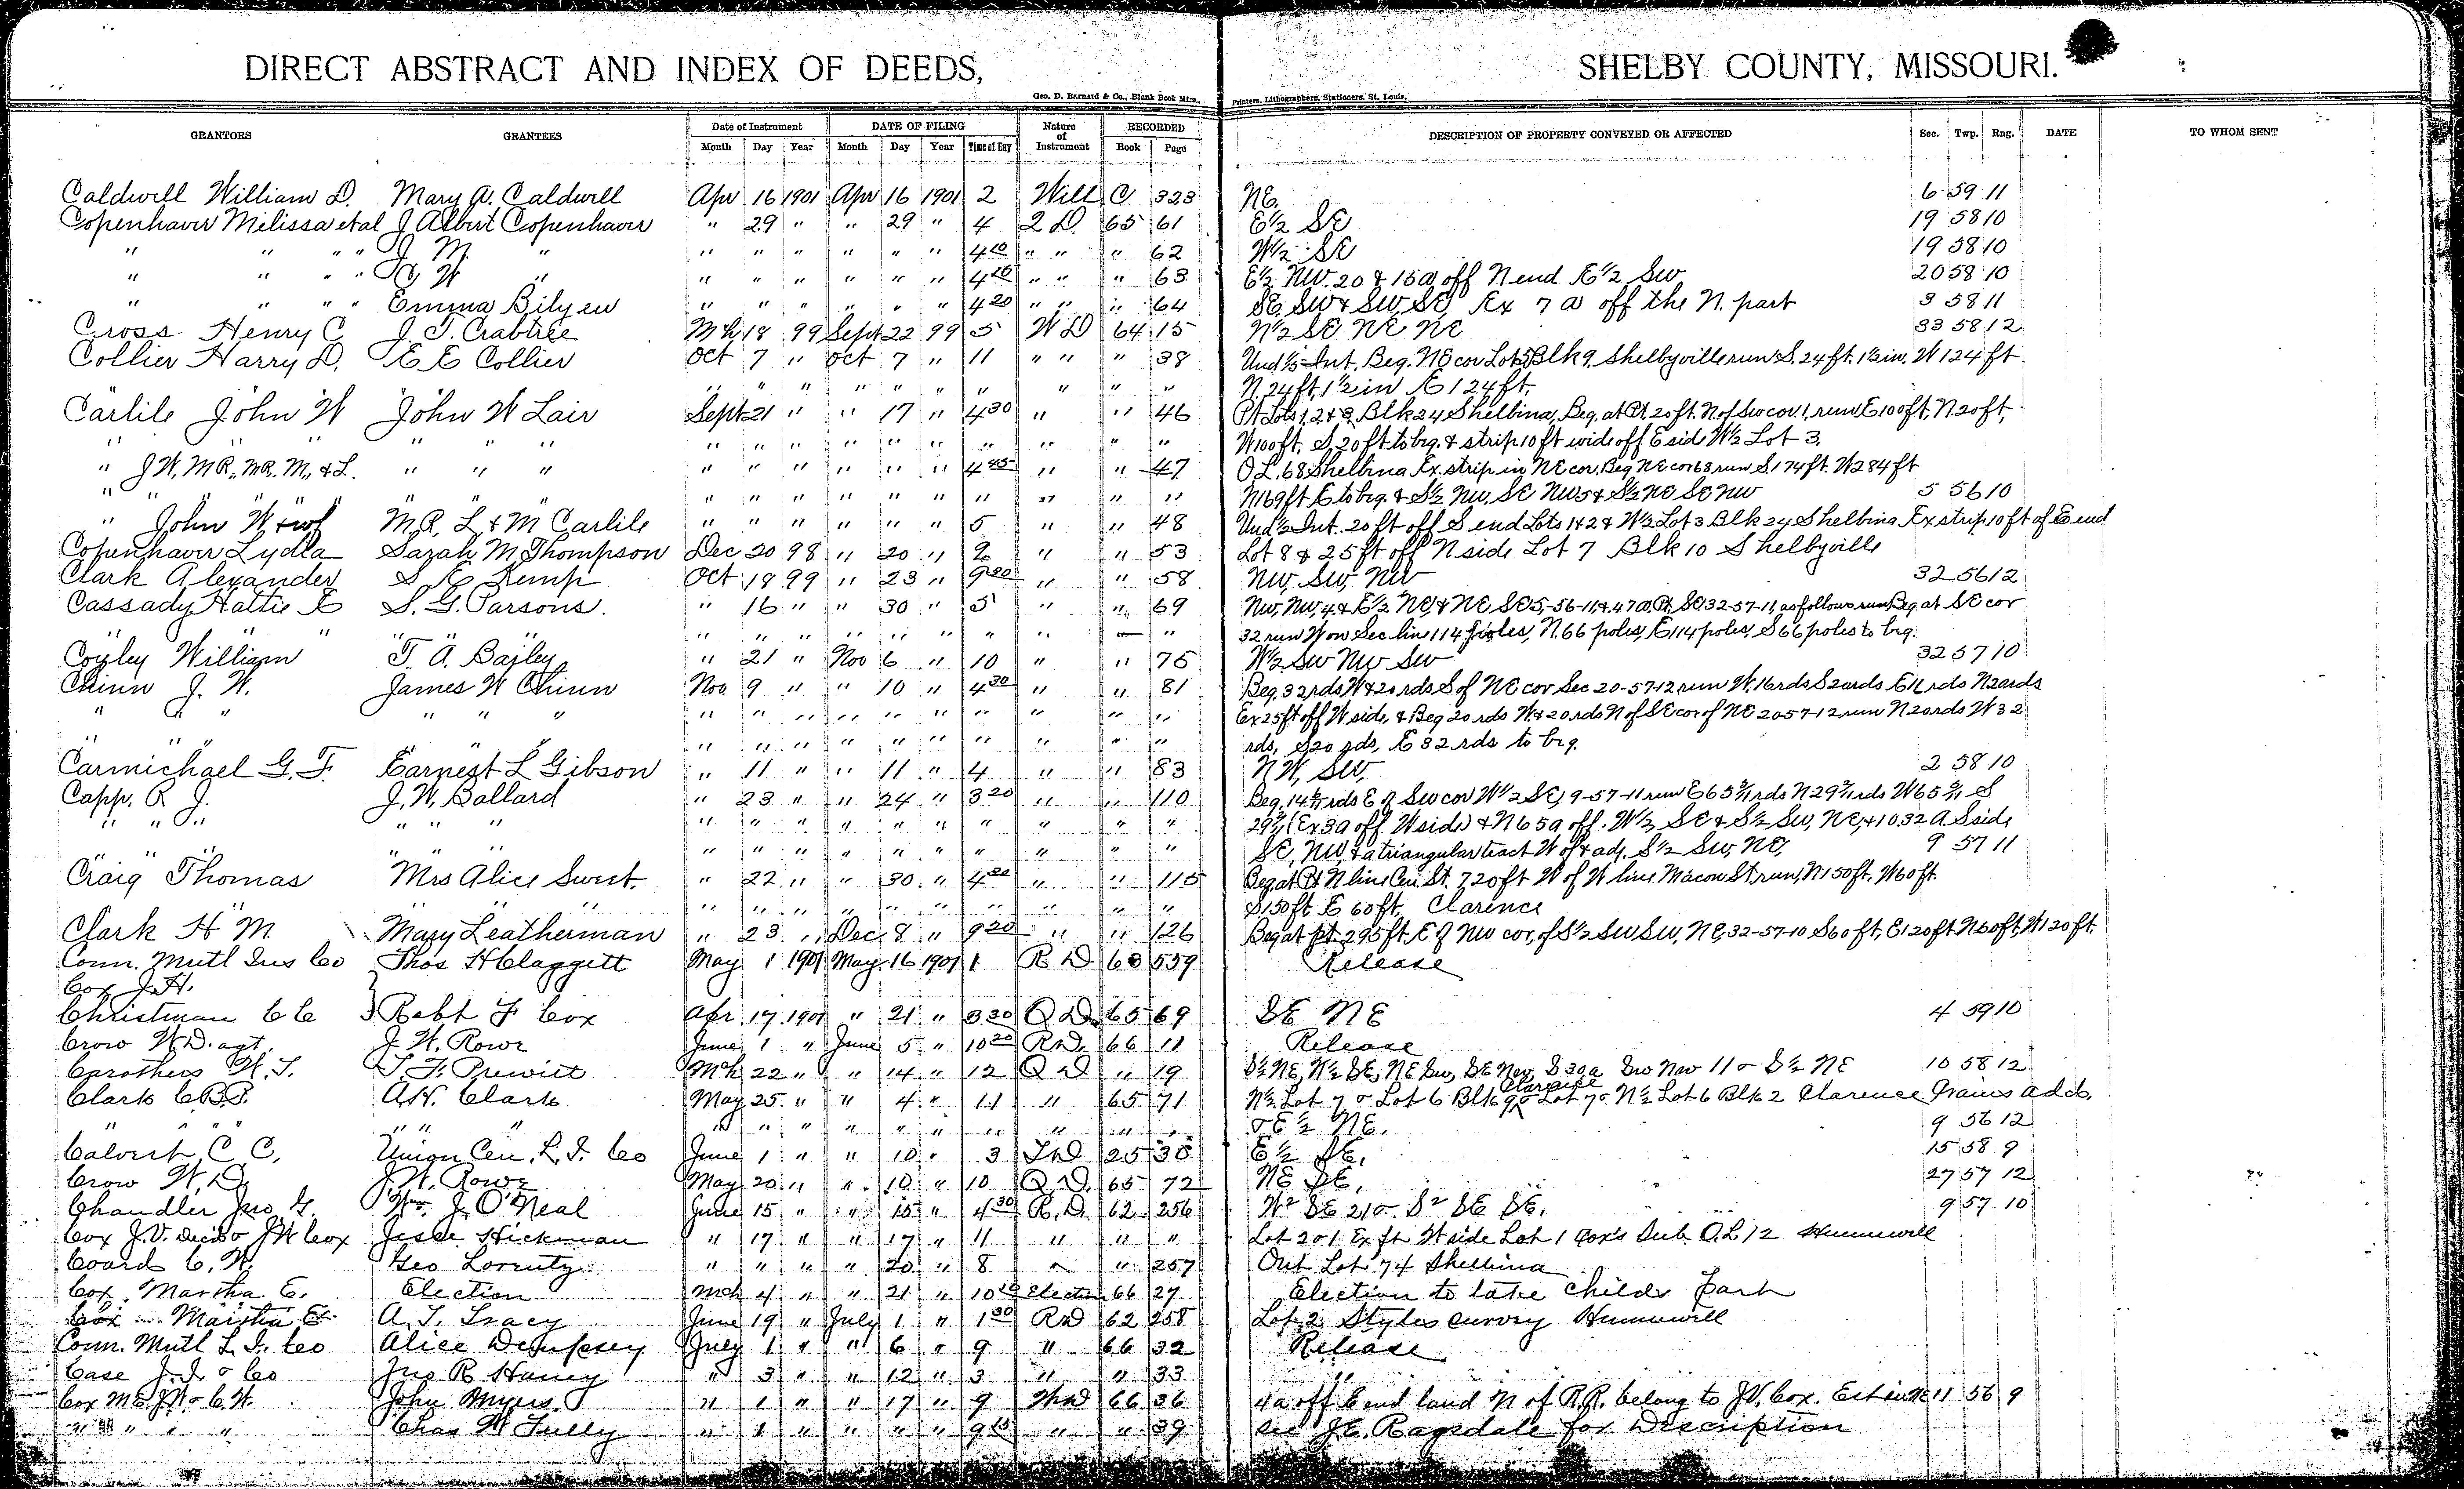 DIRECT ABSTRACT AND INDEX OF DEEDS, SHELBY COUNTY, MISSOURI.
Geo. D. Barnard & Co., Blank Book Mfrs., Printers, Lithographers, Stationers, St. Louis.
GRANTORS GRANTEES Date of Instrument DATE OF FILING Nature of Instrument RECORDED DESCRIPTION OF PROPERTY CONVEYED OR AFFECTED Sec. Twp. Rng. DATE TO WHOM SENT
Month Day Year Month Day Year Time of Day Book Page
Caldwell William D. Mary A. Caldwell Apr 16 1901 Apr 16 1901 2 Will C 323 NE. 6 59 11
Copenhaver Milissa et al J Albert Copenhaver " 29 " " 29 " 4 2 D 65 61 E½ SE 19 58 10
" " " " J M. " " " " " " " 4 10 " " " 62 W½ SE 19 58 10
" " " " W " " " " " " " 4 " " " 63 E½ NW. 20 & 15a off N end E½ SW 20 58 10
" " " " Emma Bilyeu " " " " " " 4 20 " " " 64 SE SW & SW SE Ex 7 a off the N. part 3 58 11
Cross Henry C J. T. Crabtree Mh 18 99 Sept 22 99 5 W D 64 15 N½ SE NE NE 33 58 12
Collier Harry D. E E Collier Oct 7 " Oct 7 " 11 " " " 38 Und ⅕ Int. Beg. NE cor Lot 5 Blk 9 Shelbyville run S. 24 ft. 1½ in. W 124 ft
" " " " " " " " " " N. 24 ft, 1½ in E 124 ft.
Carlile John W John W Lair Sept 21 " " 17 " 4 30 " " 46 Pt Lots 1, 2 & 3, Blk 24 Shelbina, Beg. at Pt. 20 ft. N of Sw cor 1, run E 100 ft, N. 20 ft,
" " " " " " " " " " " " " " " W 100 ft, S. 20 ft to beg. & strip 10 ft wide off E side W½ Lot 3.
" J W, M R, M R, M, & L. " " " " " " " " " 4 45 " " 47 O L. 68 Shelbina Ex. strip in NE cor. Beg NE cor 68 run S. 174 ft. W 284 ft
" " " " " " " " " " " N 169 ft E to beg. & S½ NW, SE NW 5 & S½ NE SE NW 5 56 10
" John W & wf M. R, L & M Carlile " " " " " " 5 " " 48 Und ½ Int. 20 ft off S end Lots 1 & 2 & W½ Lot 3 Blk 24 Shelbina Ex strip 10 ft of E end
Copenhaver Lydia Sarah M Thompson Dec 20 98 " 20 " 2 " " 53 Lot 8 & 25 ft off N side Lot 7 Blk 10 Shelbyville
Clark Alexander S E Kemp Oct 18 99 " 23 " 9 " " 58 NW, SW, NW 32 56 12
Cassady Hattie E S. G. Parsons. " 16 " " 30 " 5 " " 69 NW, NW, 4 & E½ NE & NE SE 5-56-11 & 47 a. Pt. SE 32-57-11, as follows run Beg at SE cor
" " " " " " " " " " " — " 32 run W on Sec line 114 poles, N. 66 poles, E 114 poles, S 66 poles to beg.
Coyley William T. A. Bailey " 21 " Nov 6 " 10 " " 75 W½ SW NW SW 32 57 10
Chinn J. W. James W Chinn Nov 9 " " 10 " 4 30 " " 81 Beg. 32 rds W & 20 rds S of NE cor Sec 20-57-12 run W. 16 rds S 20 rds E 16 rds N 20 rds
" " " " " " " " " " " " " " " Ex 25 ft off W side, & Beg 20 rds W. & 20 rds N of SE cor of NE 20 57-12 run N 20 rds W 32
" " " " " " " " " " " " " " " rds, S 20 rds, E 32 rds to beg.
Carmichael G. F. Earnest L Gibson " 11 " " 11 " 4 " " 83 NW, SW, 2 58 10
Capp. R J. J. W. Ballard " 23 " " 24 " 3 20 " " 110 Beg. 14 rds E of SW cor W½ SE, 9-57-11 run E 65 rds N 29 rds W 65 S
" " J. " " " " " " " " " " " " " 29 (Ex 3a off W side) & N 65a off. W½ SE & S½ SW, NE, & 10.32 A. S side
" " " " " " " " " " " " " " SE, NW, & a triangular tract W of & adj. S½ SW, NE, 9 57 11
Craig Thomas Mrs Alice Sweet. " 22 " " 30 " 4 " " 115 Beg. at Pt N line Cen. St. 720 ft W of W line Macon St run, N 150 ft. W 60 ft.
" " " " " " " " " " " " S. 150 ft E 60 ft, Clarence
Clark H M. Mary Leatherman " 23 " Dec 8 " 9 20 " " 126 Beg at pt. 295 ft. E of NW cor, of S½ SW SW, NE, 32-57-10 S 60 ft, E 120 ft N 60 ft, W 120 ft.
Conn. Mutl Ins Co Thos H Claggett May 1 1901 May 16 1901 1 R D 559 Release
Cox J. H.
Christman C C } Robt F Cox Apr 17 1901 " 21 " 3 30 Q D. 65 69 SE NE 4 59 10
Crow W. D. agt. J. W. Rowe June 1 " June 5 " 10 20 R D. 66 11 Release
Carothers W. T. T. F. Prewitt Mch 22 " " 14 " 12 Q D " 19 S½ NE, N½ SE, NE SW, SE NW, S 30a SW NW 11 & S½ NE 10 58 12
Clark C. B. F. A. H. Clark May 25 " " 4 " 11 " 65 71 N½ Lot 7 & Lot 6 Blk 9 Clarence & Lot 7 & N½ Lot 6 Blk 2 Clarence Grains add.
" " " " " " " " " " " " " " & E½ NE. 9 56 12
Calvert C C, Union Cen. L. I. Co June 1 " " 10 " 3 25 E½ SE, 15 58 9
Crow W. D. J. W. Rowe May 20 " " 10 " 10 Q D. 65 72 NE SE, 27 57 12
Chandler Jno G. Wm. J. O'Neal June 15 " " 15 " 4 30 R. D. 62 256 W² SE 21 & S² SE SE. 9 57 10
Cox J. V. Decd & J W Cox Jesse Hickman " 17 " " 17 " 11 " " " Lot 2 & 1 Ex ft W side Lot 1 Cox's Sub. O. L. 12 Hunnewell
Coard C. W. Geo Lorentz " " " " 20 " 8 " " 257 Out Lot 74 Shelbina
Cox. Martha E. Election Mch 4 " " 21 " 10 Election 66 27 Election to take childs part
Cox Martha E. A. T. Tracy June 19 " July 1 " 1 30 R D 62 258 Lot 2 Styles survey Hunnewell
Conn. Mutl L. I. Co Alice Dempsey July 1 " " 6 " 9 " 66 32 Release
Case J. I. & Co Jno R Haney " 3 " " 12 " 3 " " 33 "
Cox M E, J W & C W. John Myers " 1 " " 17 " 9 66 36 4 a off E end land N of R.R. belong to J. V. Cox. Est in NE 11 56 9
" " " " Chas W Tully " 1 " " " " 9 " " 39 see J. E. Ragsdale for Description